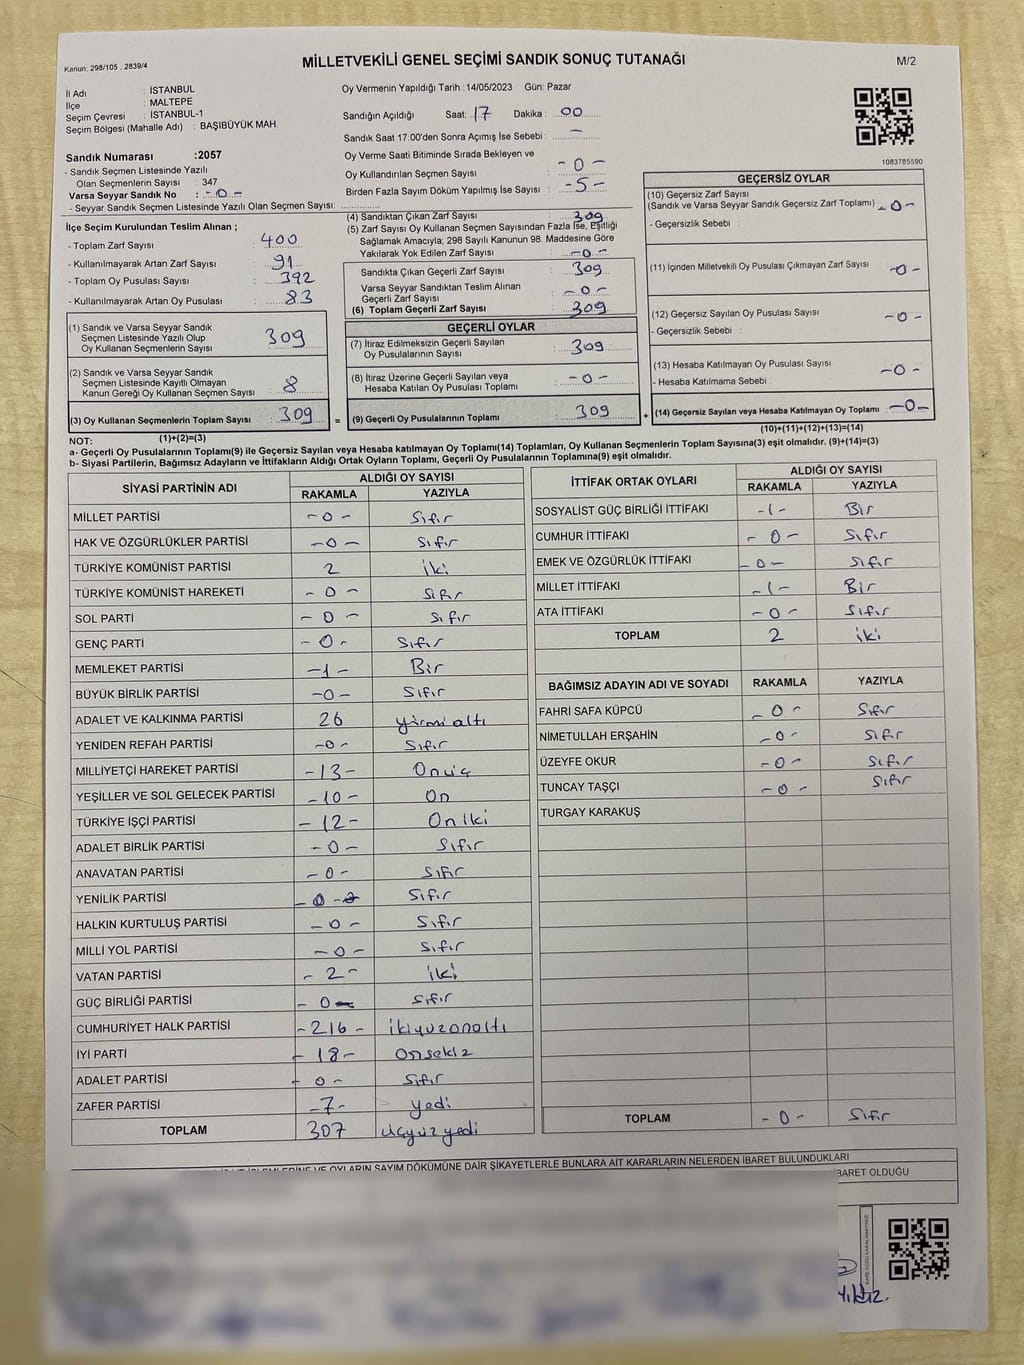 Kanun: 298/105 , 2839/4
MİLLETVEKİLİ GENEL SEÇİMİ SANDIK SONUÇ TUTANAĞI
M/2
İl Adı : İSTANBUL
İlçe : MALTEPE
Seçim Çevresi : İSTANBUL-1
Seçim Bölgesi (Mahalle Adı) : BAŞIBÜYÜK MAH.
Oy Vermenin Yapıldığı Tarih :14/05/2023 Gün: Pazar
Sandığın Açıldığı Saat: 17 Dakika : 00
Sandık Saat 17:00'den Sonra Açımış İse Sebebi : -
Oy Verme Saati Bitiminde Sırada Bekleyen ve
Oy Kullandırılan Seçmen Sayısı : -0-
Birden Fazla Sayım Döküm Yapılmış İse Sayısı : -5-
1083785590
Sandık Numarası :2057
- Sandık Seçmen Listesinde Yazılı
Olan Seçmenlerin Sayısı : 347
Varsa Seyyar Sandık No : -0-
- Seyyar Sandık Seçmen Listesinde Yazılı Olan Seçmen Sayısı:
İlçe Seçim Kurulundan Teslim Alınan ;
- Toplam Zarf Sayısı : 400
- Kullanılmayarak Artan Zarf Sayısı : 91
- Toplam Oy Pusulası Sayısı : 392
- Kullanılmayarak Artan Oy Pusulası : 83
(1) Sandık ve Varsa Seyyar Sandık
Seçmen Listesinde Yazılı Olup
Oy Kullanan Seçmenlerin Sayısı 309
(2) Sandık ve Varsa Seyyar Sandık
Seçmen Listesinde Kayıtlı Olmayan
Kanun Gereği Oy Kullanan Seçmen Sayısı 8
(3) Oy Kullanan Seçmenlerin Toplam Sayısı 309 =
(1)+(2)=(3)
(4) Sandıktan Çıkan Zarf Sayısı : 309
(5) Zarf Sayısı Oy Kullanan Seçmen Sayısından Fazla İse, Eşitliği
Sağlamak Amacıyla; 298 Sayılı Kanunun 98. Maddesine Göre
Yakılarak Yok Edilen Zarf Sayısı : -0-
Sandıkta Çıkan Geçerli Zarf Sayısı : 309
Varsa Seyyar Sandıktan Teslim Alınan
Geçerli Zarf Sayısı : -0-
(6) Toplam Geçerli Zarf Sayısı : 309
GEÇERLİ OYLAR
(7) İtiraz Edilmeksizin Geçerli Sayılan
Oy Pusulalarının Sayısı : 309
(8) İtiraz Üzerine Geçerli Sayılan veya
Hesaba Katılan Oy Pusulası Toplamı : -0-
(9) Geçerli Oy Pusulalarının Toplamı : 309 +
GEÇERSİZ OYLAR
(10) Geçersiz Zarf Sayısı
(Sandık ve Varsa Seyyar Sandık Geçersiz Zarf Toplamı) : -0-
- Geçersizlik Sebebi :
(11) İçinden Milletvekili Oy Pusulası Çıkmayan Zarf Sayısı -0-
(12) Geçersiz Sayılan Oy Pusulası Sayısı -0-
- Geçersizlik Sebebi :
(13) Hesaba Katılmayan Oy Pusulası Sayısı -0-
- Hesaba Katılmama Sebebi :
(14) Geçersiz Sayılan veya Hesaba Katılmayan Oy Toplamı : -0-
(10)+(11)+(12)+(13)=(14)
NOT:
a- Geçerli Oy Pusulalarının Toplamı(9) ile Geçersiz Sayılan veya Hesaba katılmayan Oy Toplamı(14) Toplamları, Oy Kullanan Seçmenlerin Toplam Sayısına(3) eşit olmalıdır. (9)+(14)=(3)
b- Siyasi Partilerin, Bağımsız Adayların ve İttifakların Aldığı Ortak Oyların Toplamı, Geçerli Oy Pusulalarının Toplamına(9) eşit olmalıdır.
SİYASİ PARTİNİN ADI ALDIĞI OY SAYISI
RAKAMLA YAZIYLA
MİLLET PARTİSİ -0- Sıfır
HAK VE ÖZGÜRLÜKLER PARTİSİ -0- Sıfır
TÜRKİYE KOMÜNİST PARTİSİ 2 iki
TÜRKİYE KOMÜNİST HAREKETİ -0- Sıfır
SOL PARTİ -0- Sıfır
GENÇ PARTİ -0- Sıfır
MEMLEKET PARTİSİ -1- Bir
BÜYÜK BİRLİK PARTİSİ -0- Sıfır
ADALET VE KALKINMA PARTİSİ 26 yirmialtı
YENİDEN REFAH PARTİSİ -0- Sıfır
MİLLİYETÇİ HAREKET PARTİSİ -13- Onüç
YEŞİLLER VE SOL GELECEK PARTİSİ -10- On
TÜRKİYE İŞÇİ PARTİSİ -12- Oniki
ADALET BİRLİK PARTİSİ -0- Sıfır
ANAVATAN PARTİSİ -0- Sıfır
YENİLİK PARTİSİ -0- Sıfır
HALKIN KURTULUŞ PARTİSİ -0- Sıfır
MİLLİ YOL PARTİSİ -0- Sıfır
VATAN PARTİSİ -2- iki
GÜÇ BİRLİĞİ PARTİSİ -0- Sıfır
CUMHURİYET HALK PARTİSİ -216- ikiyuzonaltı
İYİ PARTİ -18- Onsekiz
ADALET PARTİSİ -0- Sıfır
ZAFER PARTİSİ -7- yedi
TOPLAM 307 üçyüzyedi
İTTİFAK ORTAK OYLARI ALDIĞI OY SAYISI
RAKAMLA YAZIYLA
SOSYALİST GÜÇ BİRLİĞİ İTTİFAKI -1- Bir
CUMHUR İTTİFAKI -0- Sıfır
EMEK VE ÖZGÜRLÜK İTTİFAKI -0- Sıfır
MİLLET İTTİFAKI -1- Bir
ATA İTTİFAKI -0- Sıfır
TOPLAM 2 iki
BAĞIMSIZ ADAYIN ADI VE SOYADI RAKAMLA YAZIYLA
FAHRİ SAFA KÜPCÜ -0- Sıfır
NİMETULLAH ERŞAHİN -0- Sıfır
ÜZEYFE OKUR -0- Sıfır
TUNCAY TAŞÇI -0- Sıfır
TURGAY KARAKUŞ
TOPLAM -0- Sıfır
İŞLEMLERİNE VE OYLARIN SAYIM DÖKÜMÜNE DAİR ŞİKAYETLERLE BUNLARA AİT KARARLARIN NELERDEN İBARET BULUNDUKLARI
BARET OLDUĞU